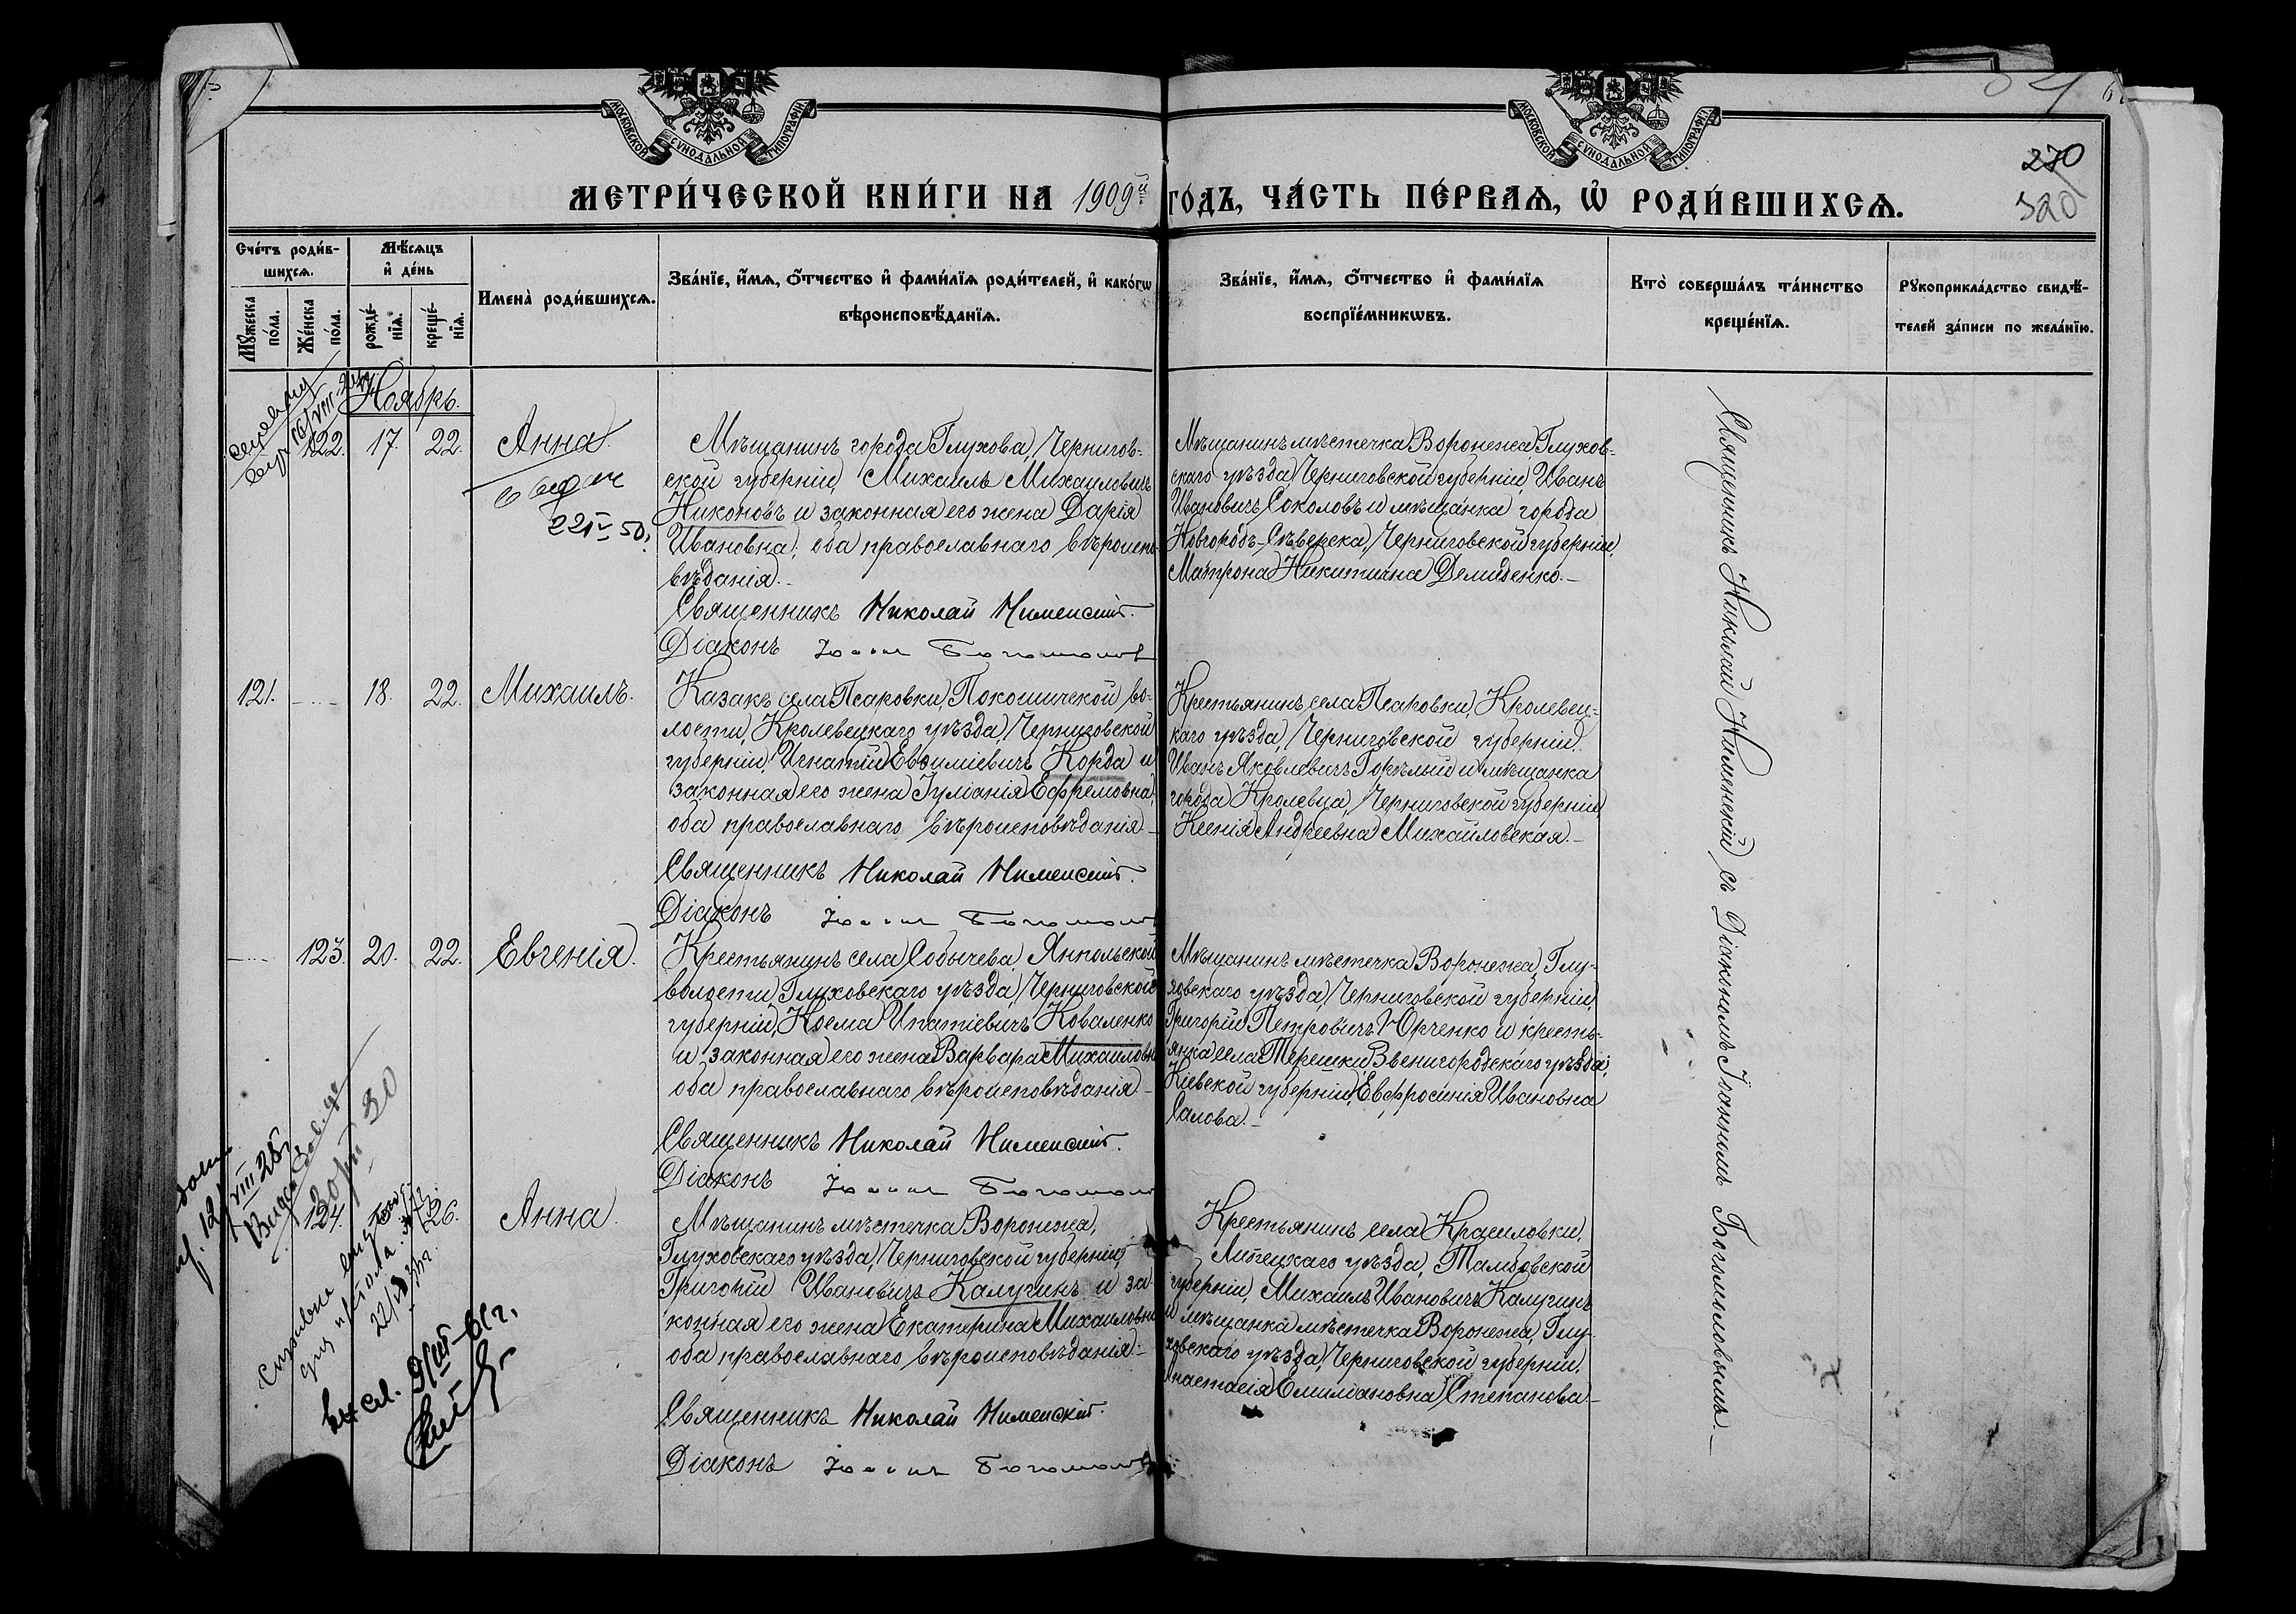 МОСКОВСКОЙ СѴНОДАЛЬНОЙ ТИПОГРАФІИ
МОСКОВСКОЙ СѴНОДАЛЬНОЙ ТИПОГРАФІИ
270
320
МЕТРИ́ЧЕСКОЙ КНИ́ГИ НА 1909й ГО́ДЪ, ЧА́СТЬ ПЕ́РВАЯ, Ѡ҆ РОДИ́ВШИХСЯ.
Сче́тъ роди́в-
шихся.
Мꙋжеска
по́ла.
Же́нска
по́ла.
Мѣ́сяцъ
и҆ де́нь
рожде́-
нїя.
креще́-
нїя.
Имена̀ роди́вшихся.
Зва́нїе, и҆́мя, ѻ҆́тчество и҆ фами́лїя роди́телей, и҆ како́гѡ
вѣроисповѣ́данїя.
Зва́нїе, и҆́мя, ѻ҆́тчество и҆ фами́лїя
воспрїе́мникѡвъ.
Кто̀ соверша́лъ та́инство
креще́нїя.
Рꙋкоприкла́дство свидѣ́-
телей за́писи по жела́нїю.
Ноябрь.
122. 17. 22. Анна.
22 IV 50.
Мѣщанинъ города Глухова, Чернигов-
ской губерніи, Михаилъ Михаиловичъ
Никоновъ и законная его жена Дарія
Ивановна; оба православнаго вѣроиспо-
вѣданія.-
Священникъ Николай Нименскій.
Діаконъ Іоаннъ Богомолов
Мѣщанинъ мѣстечка Воронежа, Глухов-
скаго уѣзда, Черниговской губерніи, Иванъ
Ивановичъ Соколовъ и мѣщанка города
Новгородъ-Сѣверска, Черниговской губерніи,
Матрона Никитична Демиденко.-
121. 18. 22. Михаилъ.
Казакъ села Псаровки, Покошичской во-
лости, Кролевецкаго уѣзда, Черниговской
губерніи, Игнатій Евѳиміевичъ Корда и
законная его жена Іуліанія Ефремовна,
оба православнаго вѣроисповѣданія.-
Священникъ Николай Нименскій.
Діаконъ Іоаннъ Богомолов
Крестьянинъ села Псаровки, Кролевец-
каго уѣзда, Черниговской губерніи,
Иванъ Яковлевичъ Горѣлый и мѣщанка
города Кролевца, Черниговской губерніи,
Ксенія Андреевна Михайловская.-
123. 20. 22. Евгенія.
Крестьянинъ села Собычева, Янпольской
волости, Глуховскаго уѣзда, Черниговской
губерніи, Косма Ипатіевичъ Коваленко
и законная его жена Варвара Михаиловна
оба православнаго вѣроисповѣданія.-
Священникъ Николай Нименскій.
Діаконъ Іоаннъ Богомолов
Мѣщанинъ мѣстечка Воронежа, Глу-
ховскаго уѣзда, Черниговской губерніи,
Григорій Петровичъ Юрченко и кресть-
янка села Терешки, Звенигородскаго уѣзда,
Кіевской губерніи, Евфросинія Ивановна
Салова.-
124. 26. Анна.
Мѣщанинъ мѣстечка Воронежа,
Глуховскаго уѣзда, Черниговской губерніи,
Григорій Ивановичъ Калугинъ и за-
конная его жена Екатерина Михаиловна
оба православнаго вѣроисповѣданія.-
Священникъ Николай Нименскій.
Діаконъ Іоаннъ Богомолов
Крестьянинъ села Красиловки,
Липецкаго уѣзда, Тамбовской
губерніи, Михаилъ Ивановичъ Калугинъ
и мѣщанка мѣстечка Воронежа, Глу-
ховскаго уѣзда, Черниговской губерніи,
Анастасія Емиліановна Степанова.-
Священникъ Николай Нименскій съ Діакономъ Іоанномъ Богомоловымъ.-